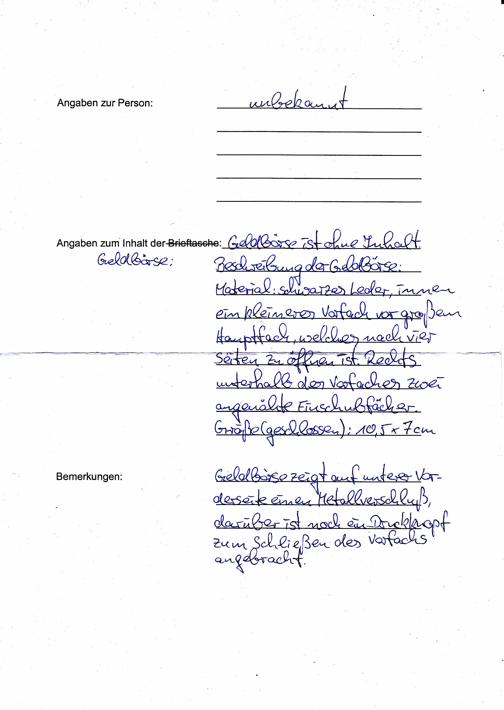 Angaben zur Person: unbekannt
Angaben zum Inhalt der Brieftasche: Geldbörse ist ohne Inhalt
Geldbörse: Beschreibung der Geldbörse:
Material: schwarzes Leder, innen
ein kleineres Vorfach vor großem
Hauptfach, welches nach vier
Seiten zu öffnen ist. Rechts
unterhalb des Vorfaches zwei
angenähte Einschubfächer.
Größe (geschlossen): 10,5 x 7cm
Bemerkungen: Geldbörse zeigt auf unterer Vor-
derseite einen Metallverschluß,
darüber ist noch ein Druckknopf
zum Schließen des Vorfachs
angebracht.